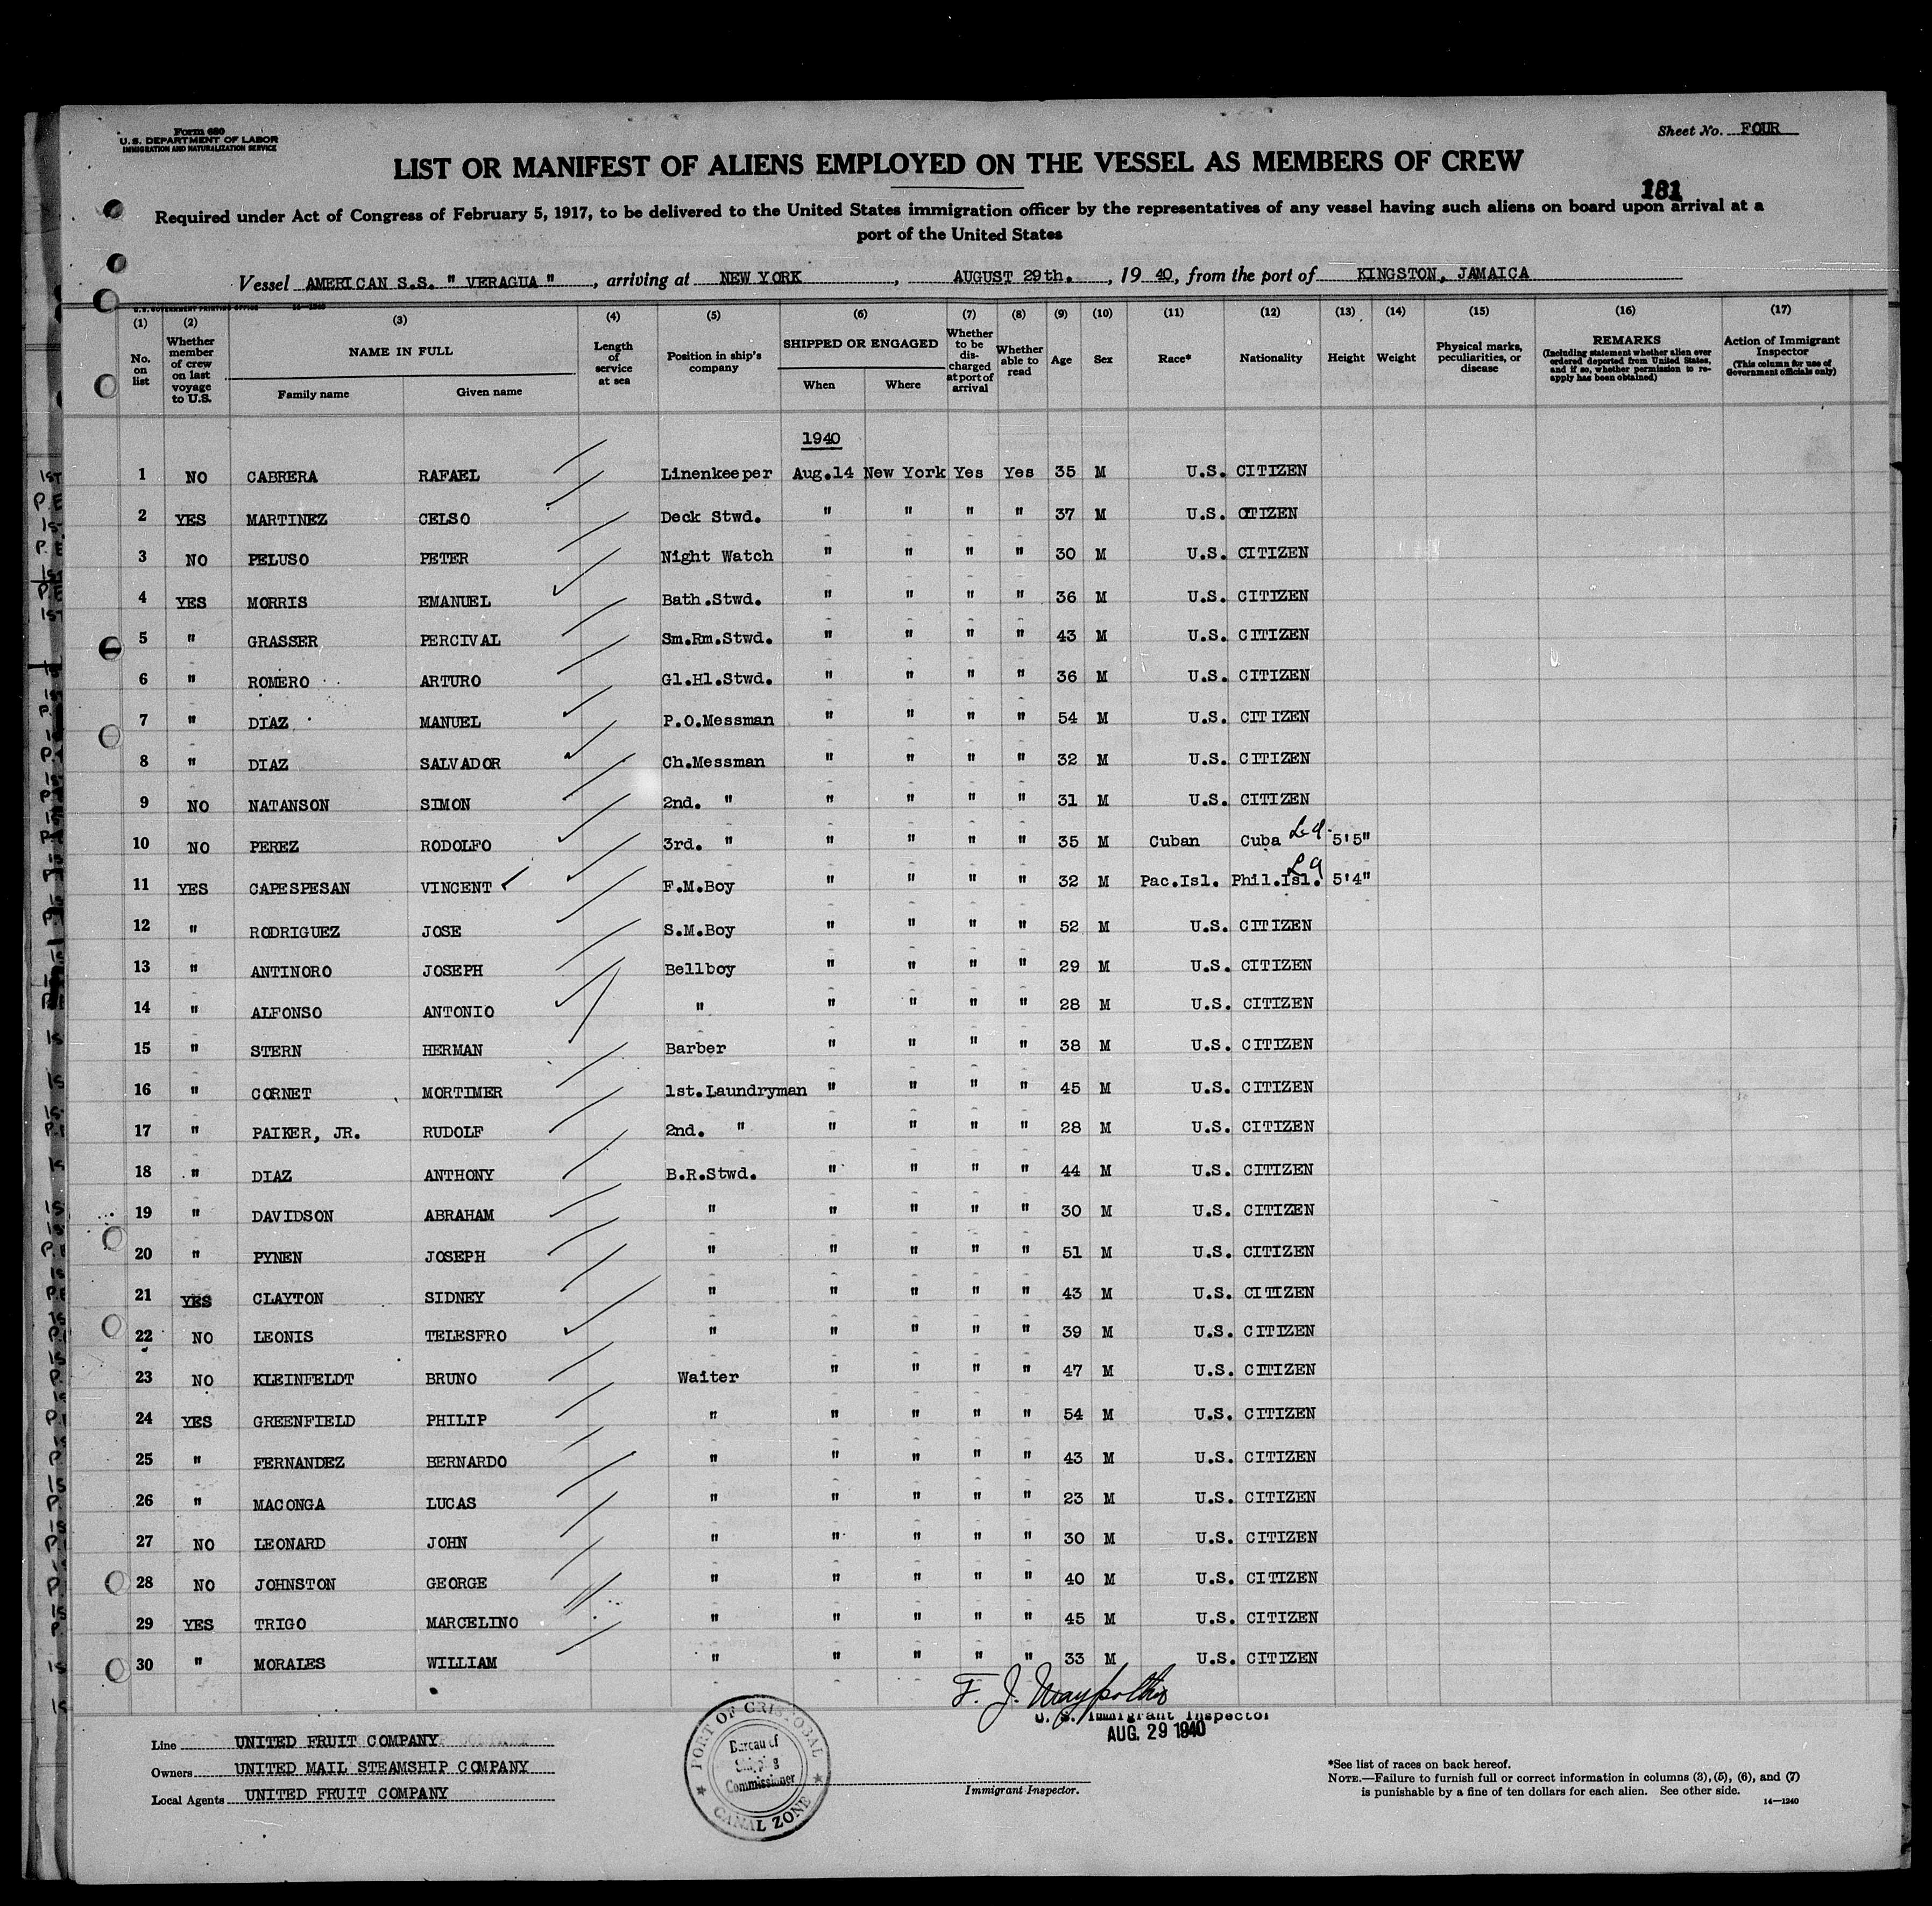 Form 680
U.S. DEPARTMENT OF LABOR
IMMIGRATION AND NATURALIZATION SERVICE
Sheet No. FOUR
LIST OR MANIFEST OF ALIENS EMPLOYED ON THE VESSEL AS MEMBERS OF CREW
181
Required under Act of Congress of February 5, 1917, to be delivered to the United States immigration officer by the representatives of any vessel having such aliens on board upon arrival at a
port of the United States
Vessel AMERICAN S.S. " VERAGUA ", arriving at NEW YORK, AUGUST 29th., 1940, from the port of KINGSTON, JAMAICA
U.S. GOVERNMENT PRINTING OFFICE 14-1240
(1) No. on list
(2) Whether member of crew on last voyage to U.S.
(3) NAME IN FULL Family name Given name
(4) Length of service at sea
(5) Position in ship's company
(6) SHIPPED OR ENGAGED When Where
(7) Whether to be discharged at port of arrival
(8) Whether able to read
(9) Age
(10) Sex
(11) Race*
(12) Nationality
(13) Height
(14) Weight
(15) Physical marks, peculiarities, or disease
(16) REMARKS (Including statement whether alien ever ordered deported from United States, and if so, whether permission to re-apply has been obtained)
(17) Action of Immigrant Inspector (This column for use of Government officials only)
1940
1 NO CABRERA RAFAEL Linenkeeper Aug.14 New York Yes Yes 35 M U.S. CITIZEN
2 YES MARTINEZ CELSO Deck Stwd. " " " " 37 M U.S. CITIZEN
3 NO PELUSO PETER Night Watch " " " " 30 M U.S. CITIZEN
4 YES MORRIS EMANUEL Bath.Stwd. " " " " 36 M U.S. CITIZEN
5 " GRASSER PERCIVAL Sm.Rm.Stwd. " " " " 43 M U.S. CITIZEN
6 " ROMERO ARTURO Gl.Hl.Stwd. " " " " 36 M U.S. CITIZEN
7 " DIAZ MANUEL P.O.Messman " " " " 54 M U.S. CITIZEN
8 " DIAZ SALVADOR Ch.Messman " " " " 32 M U.S. CITIZEN
9 NO NATANSON SIMON 2nd. " " " " " 31 M U.S. CITIZEN
10 NO PEREZ RODOLFO 3rd. " " " " " 35 M Cuban Cuba 5'5"
11 YES CAPESPESAN VINCENT F.M.Boy " " " " 32 M Pac.Isl. Phil.Isl. 5'4"
12 " RODRIGUEZ JOSE S.M.Boy " " " " 52 M U.S. CITIZEN
13 " ANTINORO JOSEPH Bellboy " " " " 29 M U.S. CITIZEN
14 " ALFONSO ANTONIO " " " " " 28 M U.S. CITIZEN
15 " STERN HERMAN Barber " " " " 38 M U.S. CITIZEN
16 " CORNET MORTIMER 1st.Laundryman " " " " 45 M U.S. CITIZEN
17 " PAIKER, JR. RUDOLF 2nd. " " " " " 28 M U.S. CITIZEN
18 " DIAZ ANTHONY B.R.Stwd. " " " " 44 M U.S. CITIZEN
19 " DAVIDSON ABRAHAM " " " " " 30 M U.S. CITIZEN
20 " PYNEN JOSEPH " " " " " 51 M U.S. CITIZEN
21 YES CLAYTON SIDNEY " " " " " 43 M U.S. CITIZEN
22 NO LEONIS TELESFRO " " " " " 39 M U.S. CITIZEN
23 NO KLEINFELDT BRUNO Waiter " " " " 47 M U.S. CITIZEN
24 YES GREENFIELD PHILIP " " " " " 54 M U.S. CITIZEN
25 " FERNANDEZ BERNARDO " " " " " 43 M U.S. CITIZEN
26 " MACONGA LUCAS " " " " " 23 M U.S. CITIZEN
27 NO LEONARD JOHN " " " " " 30 M U.S. CITIZEN
28 NO JOHNSTON GEORGE " " " " " 40 M U.S. CITIZEN
29 YES TRIGO MARCELINO " " " " " 45 M U.S. CITIZEN
30 " MORALES WILLIAM " " " " " 33 M U.S. CITIZEN
F. J.
U. S. Immigrant Inspector
AUG. 29 1940
Line UNITED FRUIT COMPANY
Owners UNITED MAIL STEAMSHIP COMPANY
Local Agents UNITED FRUIT COMPANY
PORT OF CRISTOBAL
Bureau of
Shipping
Commissioner
CANAL ZONE
Immigrant Inspector.
*See list of races on back hereof.
NOTE.—Failure to furnish full or correct information in columns (3), (5), (6), and (7)
is punishable by a fine of ten dollars for each alien. See other side.
14—1240